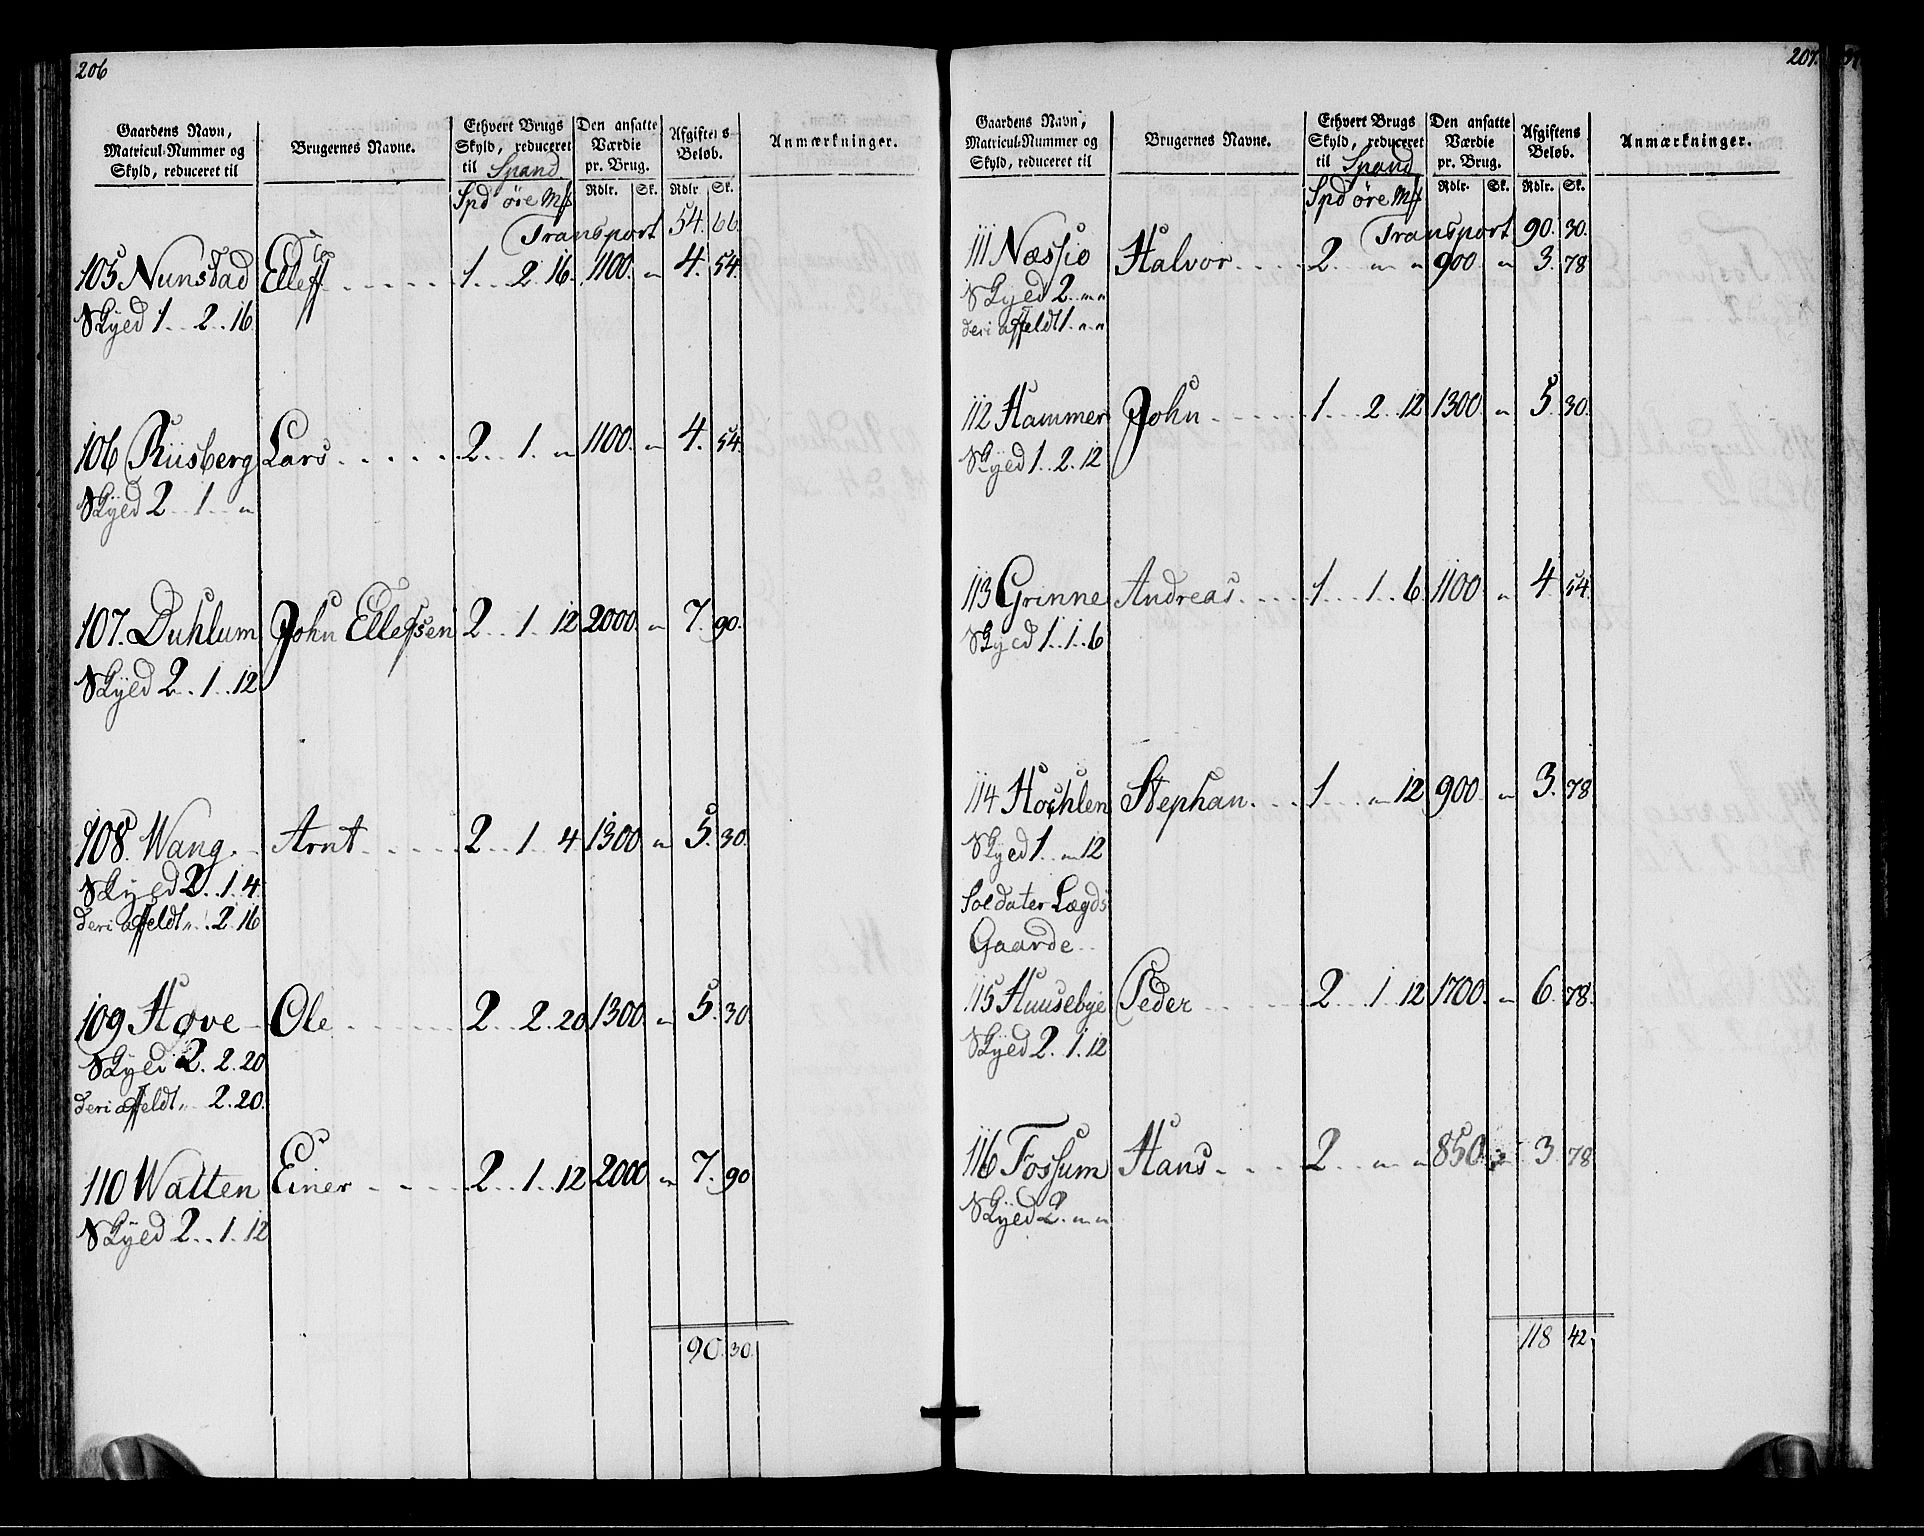 206
Gaardens Navn, Matricul-Nummer og Skyld, reduceret til
Brugernes Navne.
Ethvert Brugs Skyld, reduceret til Spand
Den ansatte Værdie pr. Brug.
Afgiftens Beløb.
Anmærkninger.
Spd øre Mk Rdlr. Sk. Rdlr. Sk.
Transport 54. 66.
105 Nunstad Ellef 1. 2. 16. 1100. " 4. 54.
Skyed 1. 2. 16
106 Riisberg Lars 2. 1. " 1100. " 4. 54.
Skyed 2. 1. "
107. Duhlum John Ellefsen 2. 1. 12 2000. " 7. 90.
Skyed 2. 1. 12
108. Wang Arnt 2. 1. 4 1300. " 5. 30.
Skyed 2. 1. 4.
deri affeldt ". 2. 16
109 Høve Ole 2. 2. 20 1300. " 5. 30
Skyed 2. 2. 20
deri affeldt " 2. 20.
110 Watten Einer 2. 1. 12 2000 " 7. 90
Skyed 2. 1. 12
90. 30.
207.
Gaardens Navn, Matricul-Nummer og Skyld, reduceret til
Brugernes Navne.
Ethvert Brugs Skyld, reduceret til Spand
Den ansatte Værdie pr. Brug.
Afgiftens Beløb.
Anmærkninger.
Spd øre Mk Rdlr. Sk. Rdlr. Sk.
Transport 90. 30.
111 Næssio Halvor 2. " " 900 " 3. 78
Skyed 2. " "
deri affeldt 1. " "
112 Hammer John 1. 2. 12 1300 " 5. 30.
Skyed 1. 2. 12
113 Grinne Andreas 1. 1. 6 1100 " 4 54.
Skyed 1. 1. 6
114 Hochlen Stephan 1. " 12 900 " 3. 78
Skyed 1. " 12
Soldater Lægds
Gaarde
115 Huusebye Peder 2. 1. 12 1700. " 6. 78.
Skyed 2. 1. 12
116 Fossum Hans 2. " " 850. 3. 78
Skyed 2. " "
118 42.